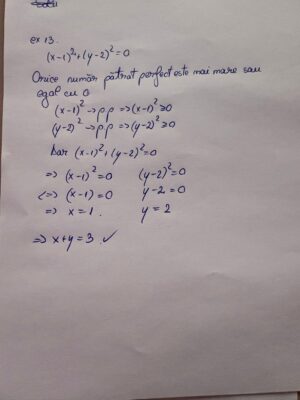 ex 13.
(x-1)²+(y-2)²=0
Orice număr pătrat perfect este mai mare sau
egal cu 0
(x-1)²→pp⇒(x-1)²≥0
(y-2)²→pp⇒(y-2)²≥0
Dar (x-1)²+(y-2)²=0
⇒ (x-1)²=0 (y-2)²=0
<=> (x-1)=0 y-2=0
⇒ x=1. y=2
⇒ x+y=3 ✓